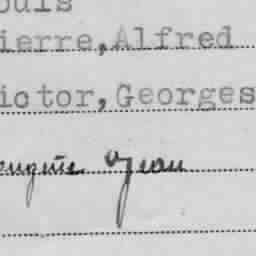 ouis
ierre, Alfred
ictor, Georges
Jean